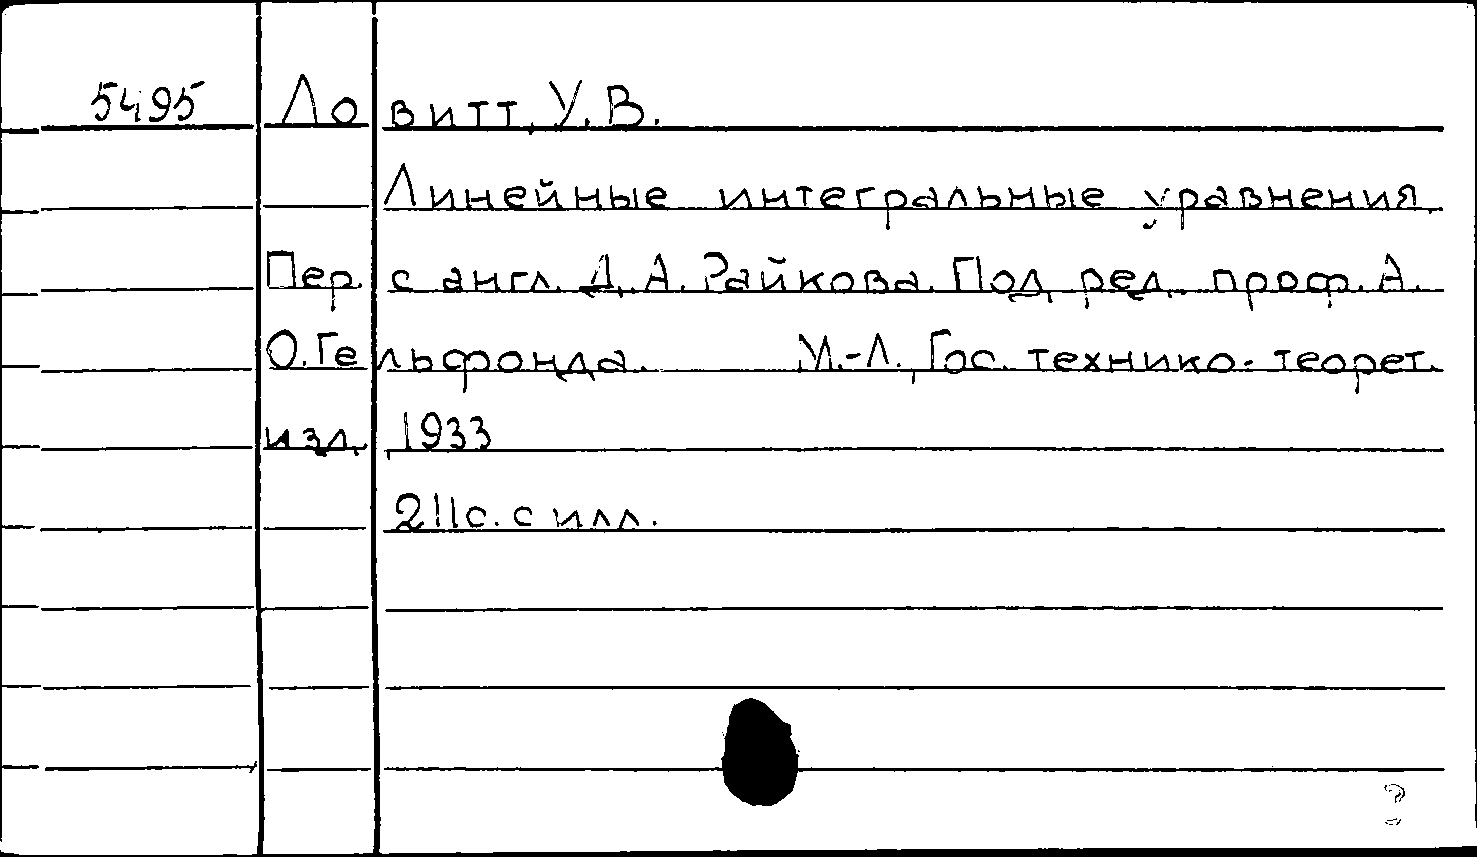 5495 Ловитт, У. В.
Линейные интегральные уравнения.
Пер. с англ. Д. А. Райкова. Под ред. проф. А.
О. Гельфонда. М.-Л., Гос. технико-теорет.
изд., 1933
211с. с илл.
?